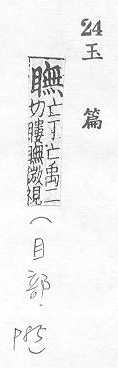 24
玉篇
瞴亡于亡禹二
切瞜瞴微視
(目部.